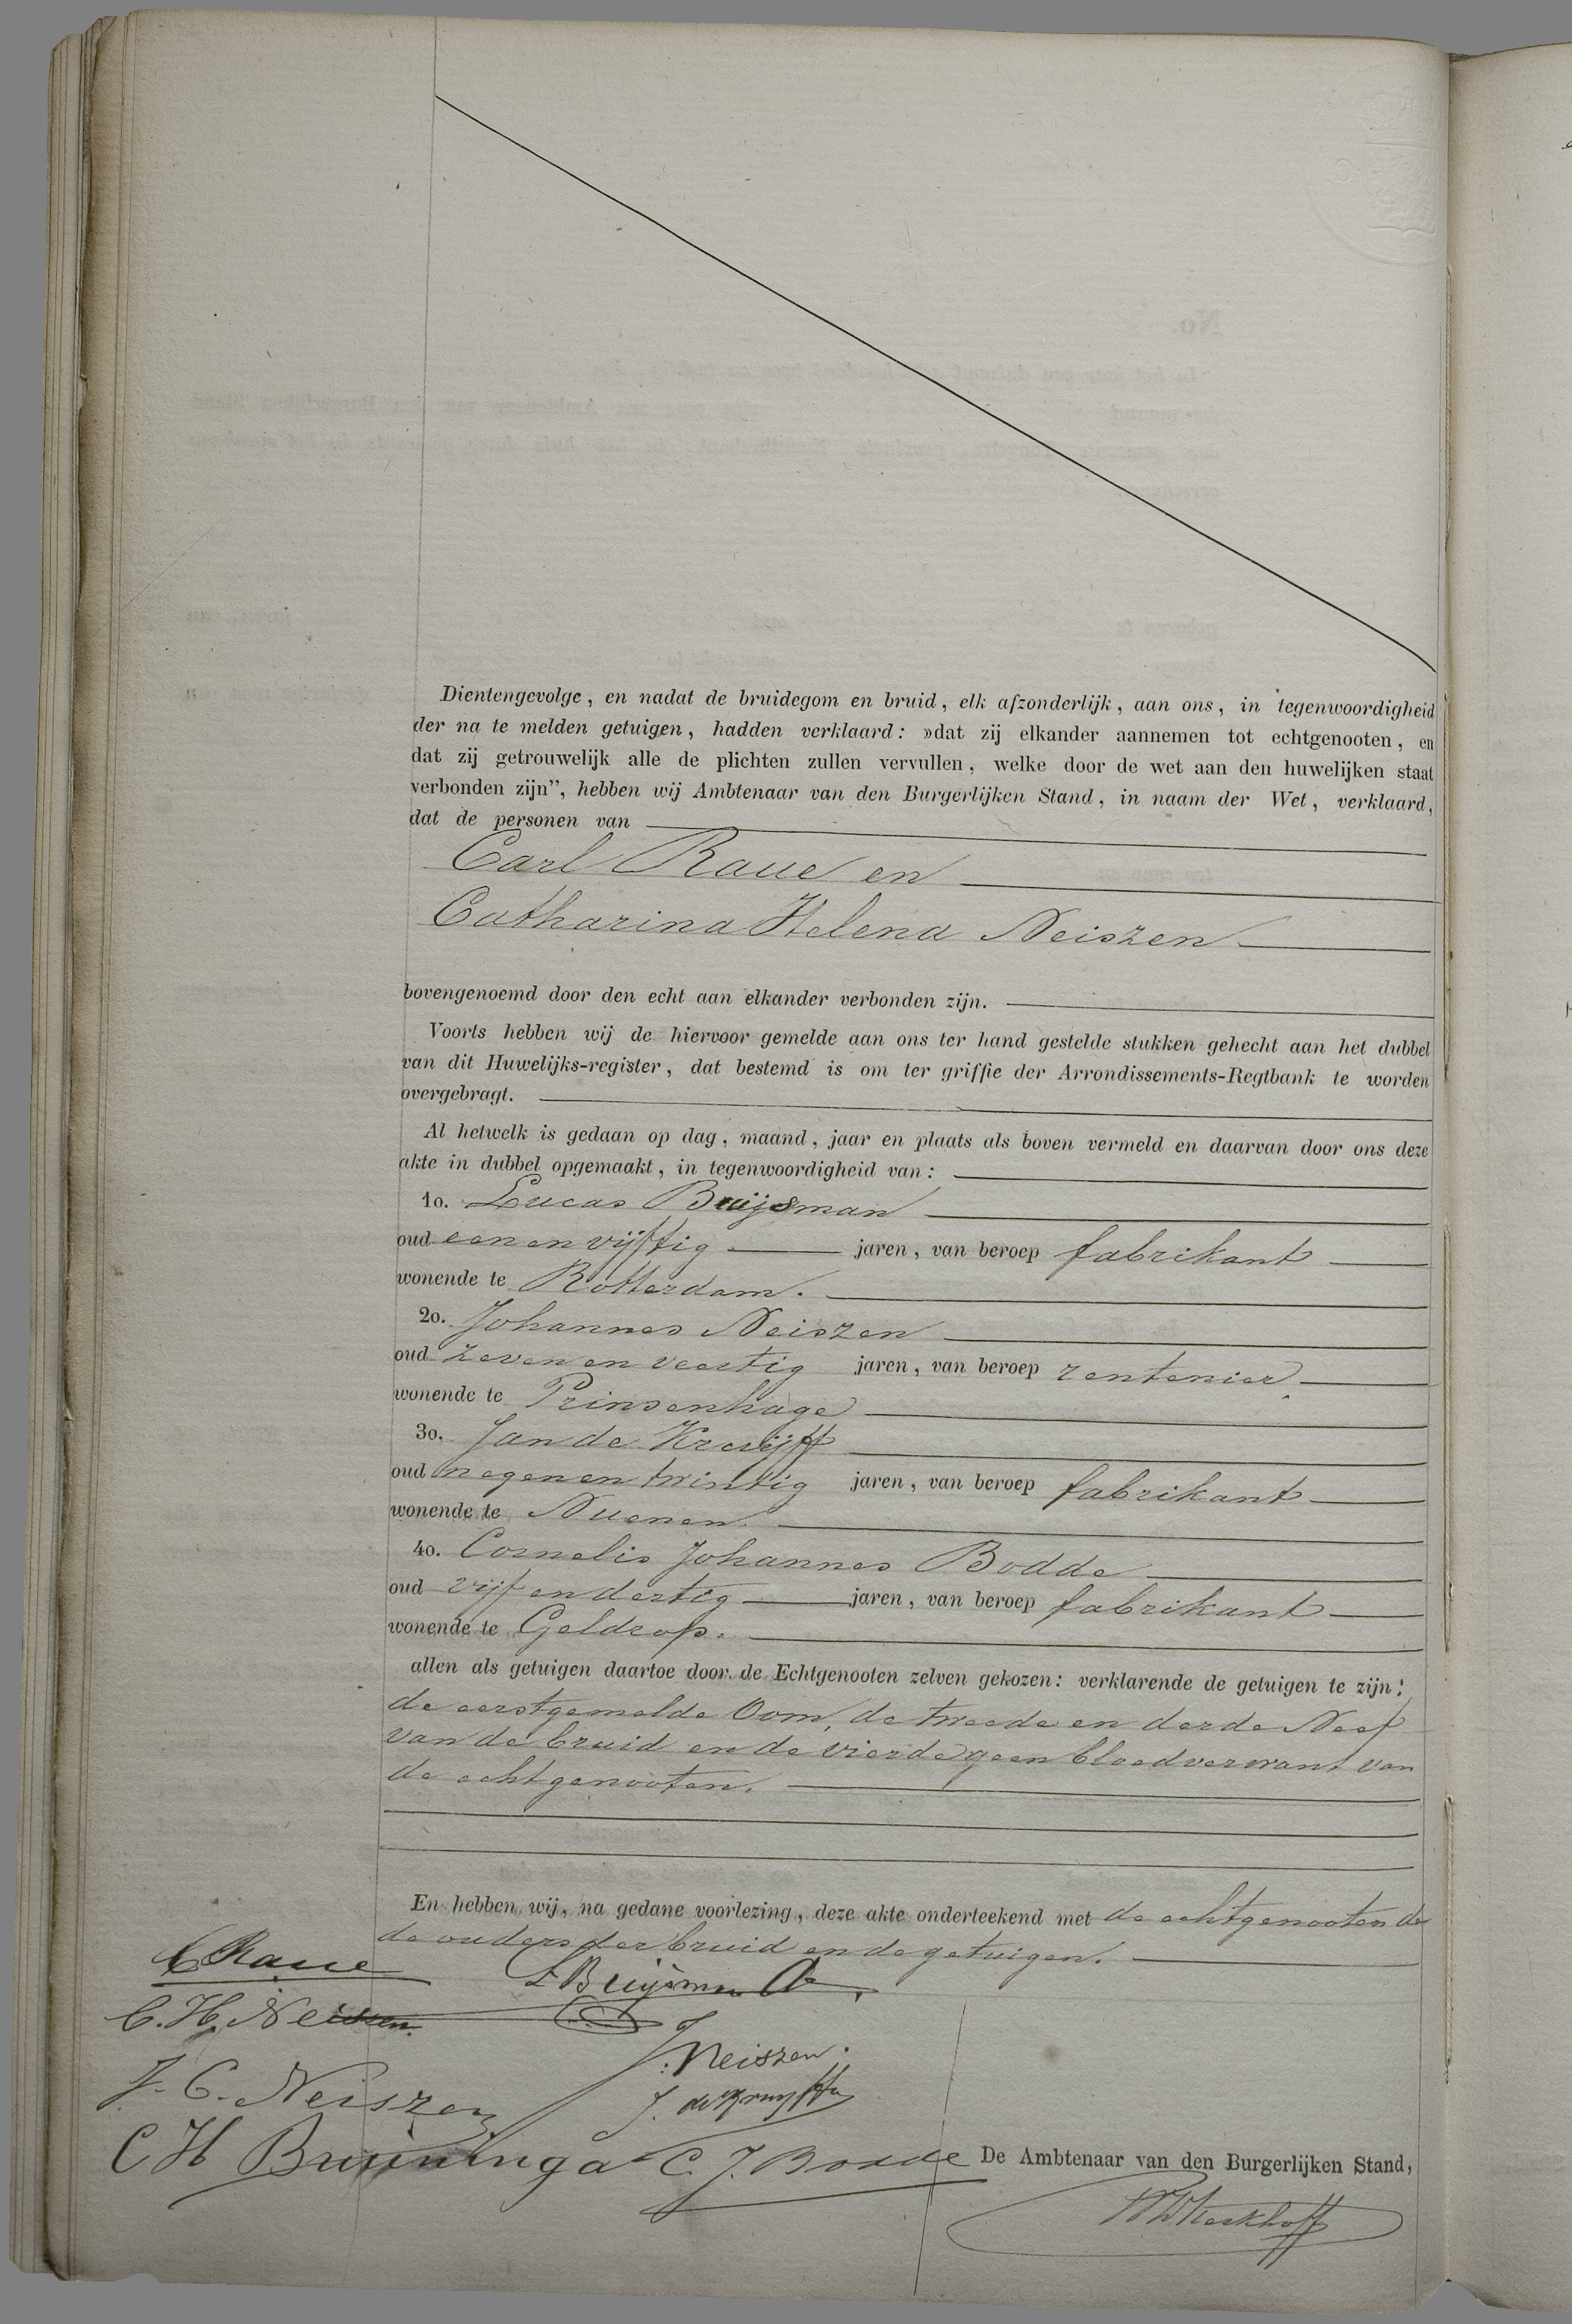 Dientengevolge, en nadat de bruidegom en bruid, elk afzonderlijk, aan ons, in tegenwoordigheid
der na te melden getuigen, hadden verklaard: »dat zij elkander aannemen tot echtgenooten, en
dat zij getrouwelijk alle de plichten zullen vervullen, welke door de wet aan den huwelijken staat
verbonden zijn”, hebben wij Ambtenaar van den Burgerlijken Stand, in naam der Wet, verklaard,
dat de personen van
Carl Raue en
Catharina Helena Neiszen
bovengenoemd door den echt aan elkander verbonden zijn.
Voorts hebben wij de hiervoor gemelde aan ons ter hand gestelde stukken gehecht aan het dubbel
van dit Huwelijks-register, dat bestemd is om ter griffie der Arrondissements-Regtbank te worden
overgebragt.
Al hetwelk is gedaan op dag, maand, jaar en plaats als boven vermeld en daarvan door ons deze
akte in dubbel opgemaakt, in tegenwoordigheid van:
1o. Lucas Buijsman
oud een en vijftig jaren, van beroep fabrikant
wonende te Rotterdam.
2o. Johannes Neiszen
oud zeven en veertig jaren, van beroep rentenier
wonende te Prinsenhage
3o. Jan de Kruijff
oud negen en twintig jaren, van beroep fabrikant
wonende te Nuenen
4o. Cornelis Johannes Bodde
oud vijf en dertig jaren, van beroep fabrikant
wonende te Geldrop.
allen als getuigen daartoe door de Echtgenooten zelven gekozen: verklarende de getuigen te zijn:
de eerstgemelde Oom, de tweede en derde Neef
van de bruid en de vierde geen bloedverwant van
de echtgenooten.
En hebben wij, na gedane voorlezing, deze akte onderteekend met de echtgenooten de
de ouders der bruid en de getuigen.
C Raue
L Buijsman
C. H. Neiszen.
J. Neiszen.
J. C. Neiszen
J. de Kruyff
C H Bruininga
C. J. Bodde
De Ambtenaar van den Burgerlijken Stand,
Kerkhoff